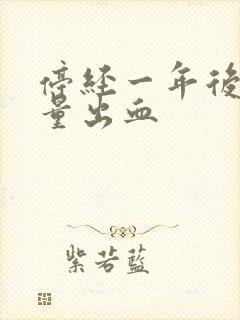 停經一年後
量出血
紫若藍